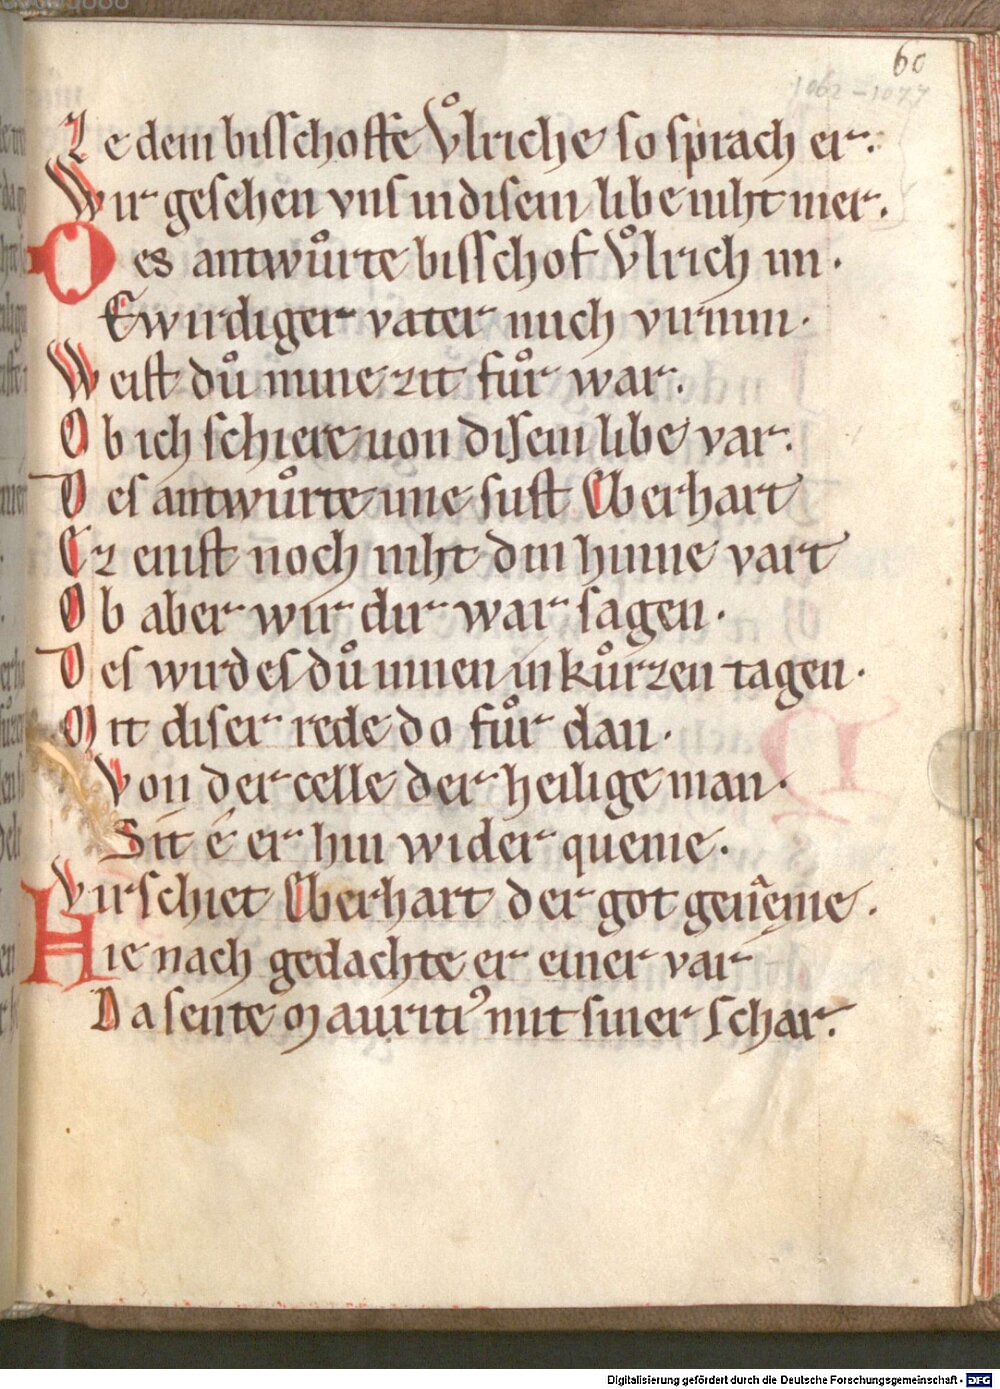 60
1062-1077
Ze dem bisſchoffe Vͦlriche ſo ſprach er.
Wir geſehen vnſ indiſem libe niht mer.
Des antwuͦrte bisſchof Vͦlrich im.
Ewirdiger vater mich virnim.
Weiſt duͦ mine zit fuͦr war.
Ob ich ſchiere uon diſem libe var.
Deſ antwuͦrte ime ſuſt Eberhart
Ez eniſt noch niht din hinne vart
Ob aber wir dir war ſagen.
Deſ wirdeſ duͦ innen in kuͦrzen tagen.
Mit diſer rede do fuͦr dan.
Von der celle der heilige man.
Sit é er hin wider queme.
Virſchiet Eberhart der got geneme.
Hie nach gedachte er einer var
Da ſente Mauriti᾽ mit ſiner ſchar.
Digitalisierung gefördert durch die Deutsche Forschungsgemeinschaft - DFG